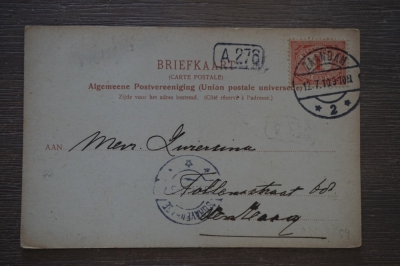 BRIEFKAART
(CARTE POSTALE)
A 276
Algemeene Postvereeniging (Union postale universelle)
Zijde voor het adres bestemd. (Côté réservé à l'adresse.)
ZAANDAM
2
AAN Mevr. Wiersma
Tollensstraat
Den Haag